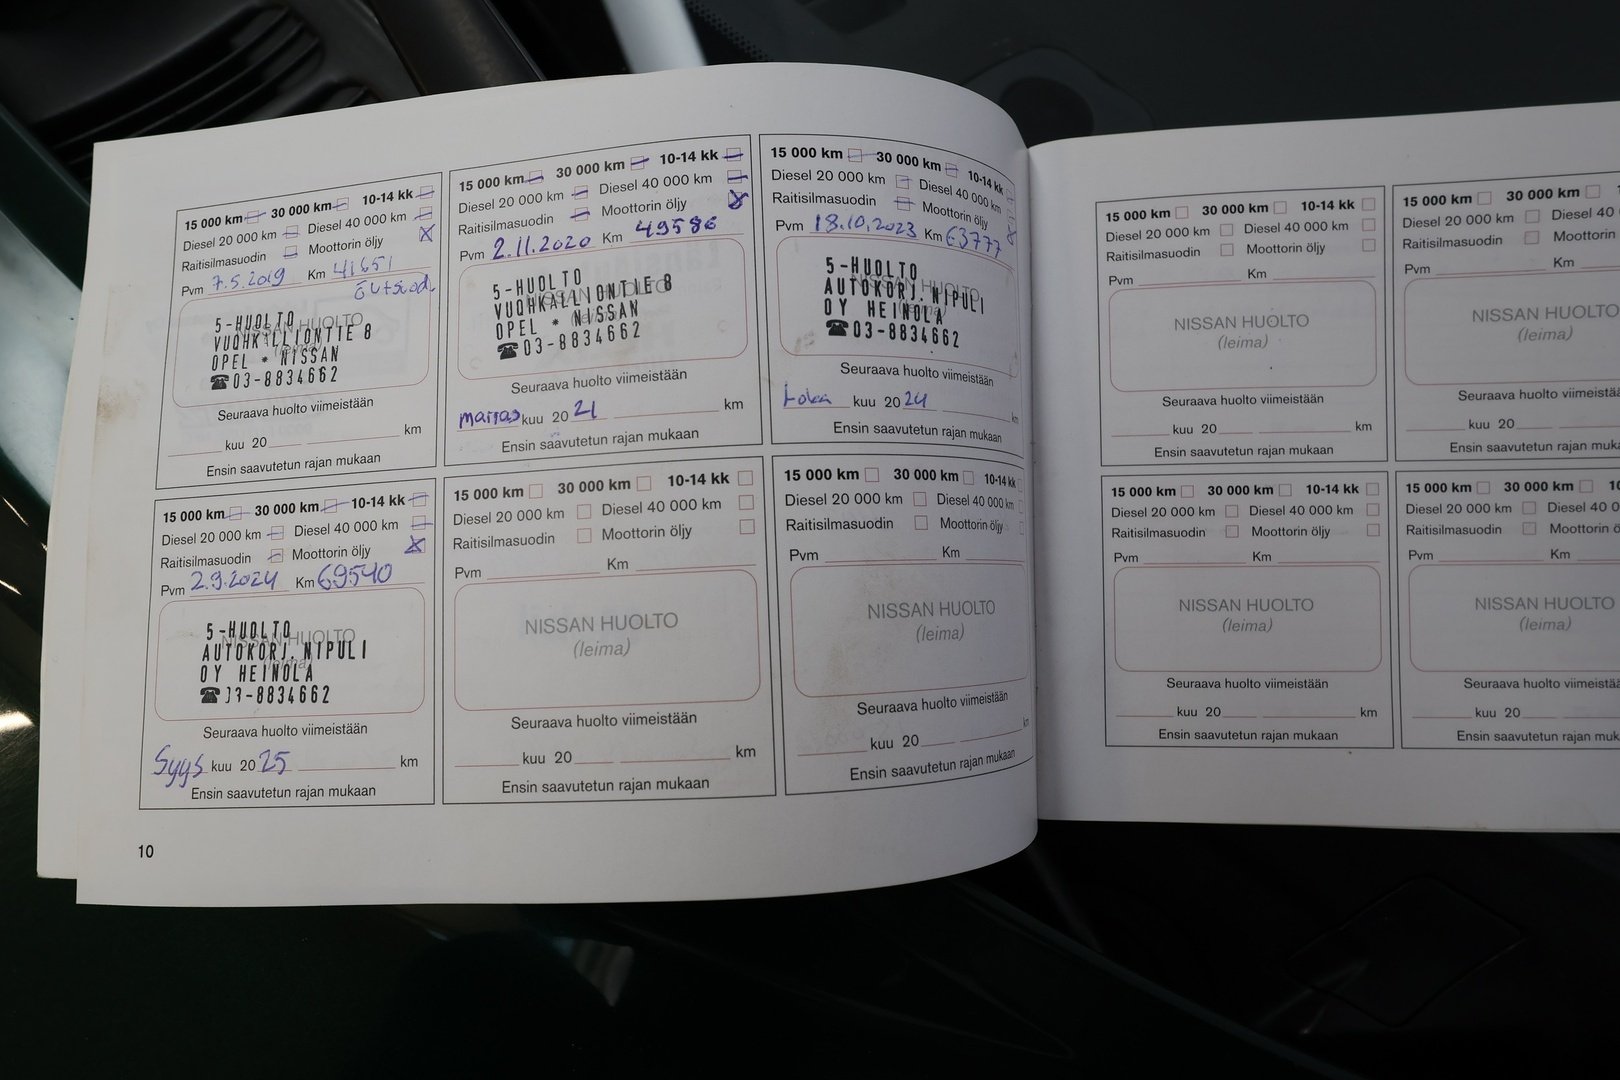 15 000 km 30 000 km 10-14 kk
Diesel 20 000 km Diesel 40 000 km
Raitisilmasuodin Moottorin öljy
Pvm 7.5.2019 Km 41651
NISSAN HUOLTO
(leima)
5-HUOLTO
VUOHKALLIONTIE 8
OPEL * NISSAN
☎03-8834662
Seuraava huolto viimeistään
kuu 20 km
Ensin saavutetun rajan mukaan
15 000 km 30 000 km 10-14 kk
Diesel 20 000 km Diesel 40 000 km
Raitisilmasuodin Moottorin öljy
Pvm 2.11.2020 Km 49586
5-HUOLTO
VUOHKALLIONTIE 8
OPEL * NISSAN
☎03-8834662
Seuraava huolto viimeistään
marras kuu 20 21 km
Ensin saavutetun rajan mukaan
15 000 km 30 000 km 10-14 kk
Diesel 20 000 km Diesel 40 000 km
Raitisilmasuodin Moottorin öljy
Pvm 18.10.2023 Km 63777
NISSAN HUOLTO
5-HUOLTO
AUTOKORJ. NIPULI
OY HEINOLA
☎03-8834662
Seuraava huolto viimeistään
Loka kuu 20 24 km
Ensin saavutetun rajan mukaan
15 000 km 30 000 km 10-14 kk
Diesel 20 000 km Diesel 40 000 km
Raitisilmasuodin Moottorin öljy
Pvm 2.9.2024 Km 69540
NISSAN HUOLTO
5-HUOLTO
AUTOKORJ. NIPULI
OY HEINOLA
☎03-8834662
Seuraava huolto viimeistään
Syys kuu 20 25 km
Ensin saavutetun rajan mukaan
15 000 km 30 000 km 10-14 kk
Diesel 20 000 km Diesel 40 000 km
Raitisilmasuodin Moottorin öljy
Pvm Km
NISSAN HUOLTO
(leima)
Seuraava huolto viimeistään
kuu 20 km
Ensin saavutetun rajan mukaan
15 000 km 30 000 km 10-14 kk
Diesel 20 000 km Diesel 40 000 km
Raitisilmasuodin Moottorin öljy
Pvm Km
NISSAN HUOLTO
(leima)
Seuraava huolto viimeistään
kuu 20 km
Ensin saavutetun rajan mukaan
10
15 000 km 30 000 km 10-14 kk
Diesel 20 000 km Diesel 40 000 km
Raitisilmasuodin Moottorin öljy
Pvm Km
NISSAN HUOLTO
(leima)
Seuraava huolto viimeistään
kuu 20 km
Ensin saavutetun rajan mukaan
15 000 km 30 000 km
Diesel 20 000 km Diesel 40
Raitisilmasuodin Moottorin
Pvm Km
NISSAN HUOLTO
(leima)
Seuraava huolto viimeistä
kuu 20
Ensin saavutetun rajan muka
15 000 km 30 000 km 10-14 kk
Diesel 20 000 km Diesel 40 000 km
Raitisilmasuodin Moottorin öljy
Pvm Km
NISSAN HUOLTO
(leima)
Seuraava huolto viimeistään
kuu 20 km
Ensin saavutetun rajan mukaan
15 000 km 30 000 km 10
Diesel 20 000 km Diesel 40 0
Raitisilmasuodin Moottorin ö
Pvm Km
NISSAN HUOLTO
(leima)
Seuraava huolto viimeistä
kuu 20
Ensin saavutetun rajan muk